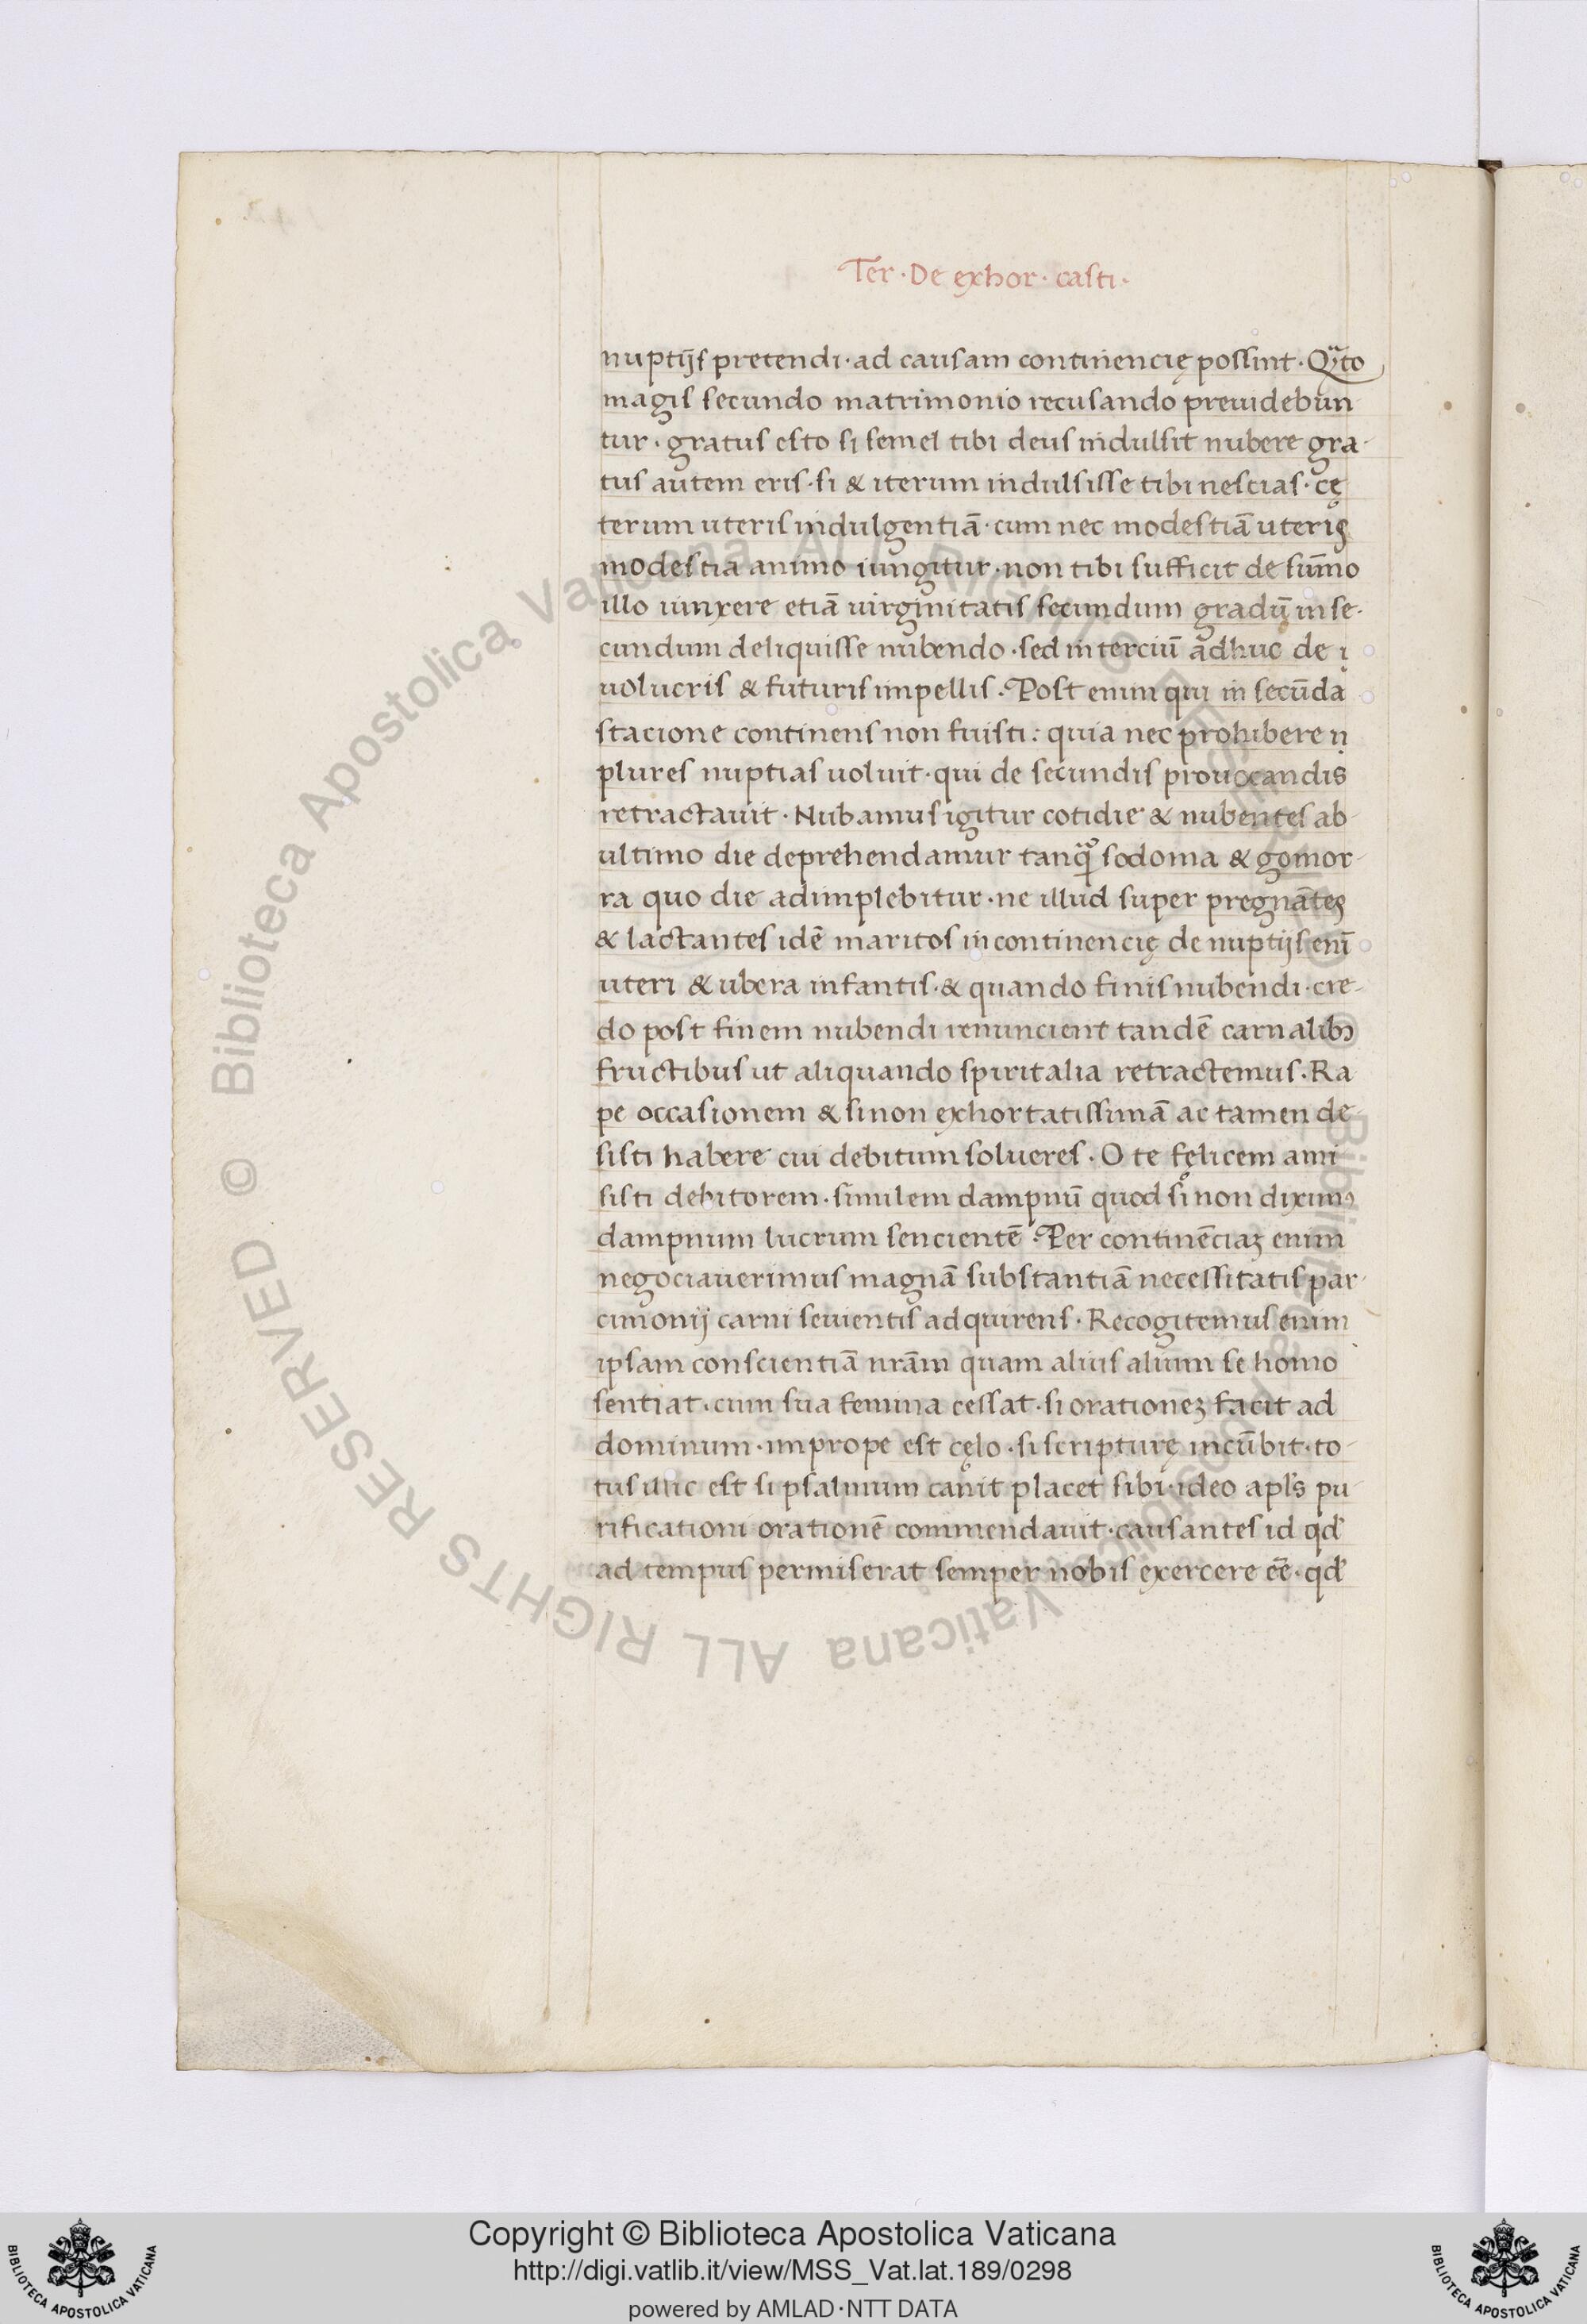 Ter · De exhor · casti ·
nuptijs pretendi · ad causam continencię possint · Qᷓto
magis secundo matrimonio recusando preuidebun
tur · gratus esto si semel tibi deus indulsit nubere gra-
tus autem eris · si & iterum indulsisse tibi nescias · cę
terum uteris indulgentiā · cum nec modestiā uteris
modestia animo iungitur · non tibi sufficit de sūmo
illo uinxere etiā uirginitatis secundum gradū in se-
cundum deliquisse nubendo · sed in terciū adhuc de i
uolucris & futuris impellis · Post enim qui in secūda
stacione continens non fuisti : quia nec prohibere n
plures nuptias uoluit · qui de secundis prouocandis
retractauit · Nubamus igitur cotidie & nubentes ab
ultimo die deprehendamur tanqᷓ sodoma & gomor-
ra quo die adimplebitur · ne illud super pregnātes
& lactantes idē maritos incontinencię de nuptijs enī
uteri & ubera infantis · & quando finis nubendi · cre-
do post finem nubendi renuncient tandē carnalibꝫ
fructibus ut aliquando spiritalia retractemus · Ra
pe occasionem & si non exhortatissimā ac tamen de-
sisti habere cui debitum solueres · O te fęlicem ami
sisti debitorem · similem dampnū quod si non diximꝰ
dampnum lucrum sencientē · Per continēciaꝫ enim
negociauerimus magnā substantiā necessitatis par-
cimonij carni seuientis adquirens · Recogitemus enim
ipsam conscientiā nrām quam alius alium se homo
sentiat · cum sua femina cessat · si orationeꝫ facit ad
dominum · im prope est cęlo · si scripturę incūbit · to-
tus illic est si psalmum canit placet sibi · ideo apls̄ pu
rificationi orationē commendauit · causantes id qd'
ad tempus permiserat semper nobis exercere eē · qd'
© Biblioteca Apostolica Vaticana ALL RIGHTS RESERVED
© Biblioteca Apostolica Vaticana ALL RIGHTS RESERVED
Copyright © Biblioteca Apostolica Vaticana
http://digi.vatlib.it/view/MSS_Vat.lat.189/0298
powered by AMLAD·NTT DATA
BIBLIOTECA APOSTOLICA VATICANA
BIBLIOTECA APOSTOLICA VATICANA